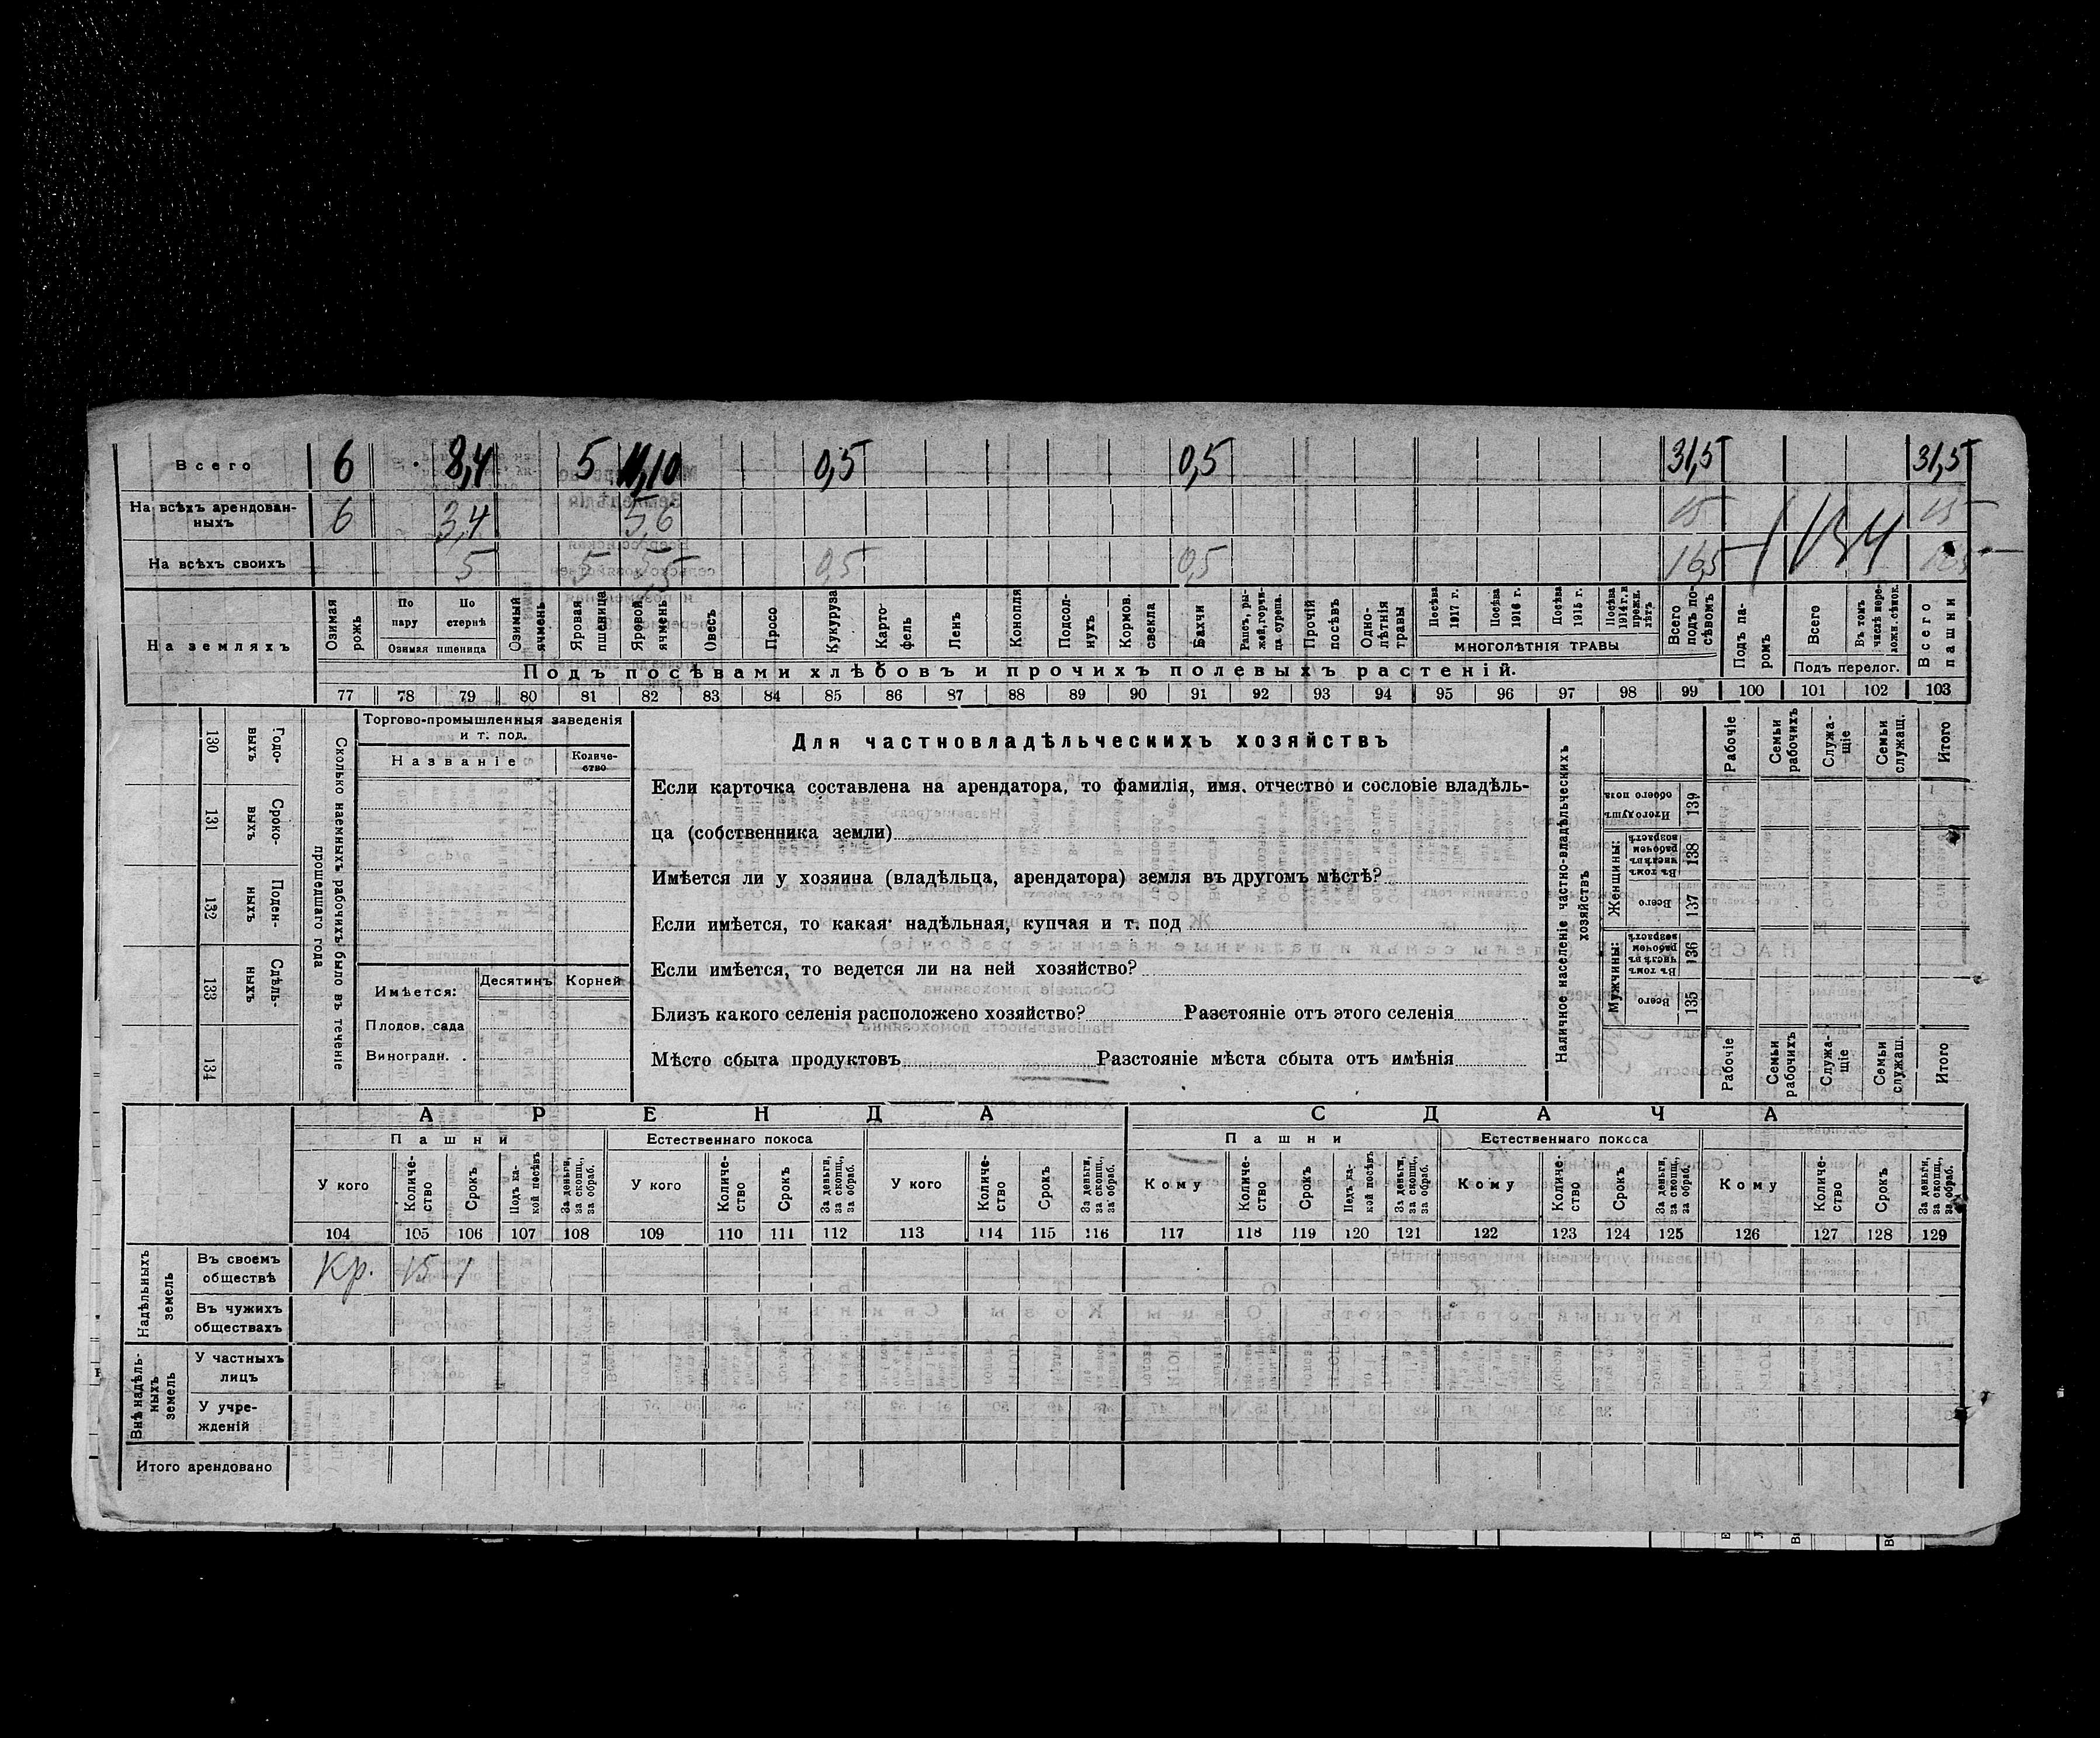 Всего 6 8,4 5 11,10 0,5 0,5 31,5 31,5
На всѣхъ арендован-
ныхъ 6 3,4 5,6 15 15
На всѣхъ своихъ 5 5 0,5 0,5 16,5
На земляхъ
Озимая рожь
По пару
По стернѣ
Озимая пшеница
Озимый ячмень
Яровая пшеница
Яровой ячмень
Овесъ
Просо
Кукуруза
Карто-
фель
Ленъ
Конопля
Подсол-
нухъ
Кормов.
свекла
Бахчи
Рапсъ, ры-
жей, горчи-
ца сурепа.
Прочій
посѣвъ
Одно-
лѣтнія
травы
Посѣва
1917 г.
Посѣва
1916 г.
Посѣва
1915 г.
Посѣва
1914 г. и
прежн.
лѣтъ
МНОГОЛѢТНІЯ ТРАВЫ
Всего
подъ по-
сѣвомъ
Подъ па-
ромъ
Всего
Въ томъ
числѣ пере-
ложн. сѣнок.
Подъ перелог.
Всего
пашни
Подъ посѣвами хлѣбовъ и прочихъ полевыхъ растеній.
77 78 79 80 81 82 83 84 85 86 87 88 89 90 91 92 93 94 95 96 97 98 99 100 101 102 103
130 Годо-
выхъ
131 Сроко-
выхъ
132 Поден-
ныхъ
133 Сдѣль-
ныхъ
134
Сколько наемныхъ рабочихъ было въ теченіе
прошедшаго года
Торгово-промышленныя заведенія
и т. под.
Названіе
Количе-
ство
Имѣется:
Десятинъ
Корней
Плодов. сада
Виноградн. .
Для частновладѣльческихъ хозяйствъ
Если карточка составлена на арендатора, то фамилія, имя, отчество и сословіе владѣль-
ца (собственника земли)
Имѣется ли у хозяина (владѣльца, арендатора) земля въ другомъ мѣстѣ?
Если имѣется, то какая: надѣльная, купчая и т. под
Если имѣется, то ведется ли на ней хозяйство?
Близъ какого селенія расположено хозяйство? Разстояніе отъ этого селенія
Мѣсто сбыта продуктовъ Разстояніе мѣста сбыта отъ имѣнія
Наличное населеніе частно-владѣльческихъ
хозяйствъ
Рабочіе
Семьи
рабочихъ
Служа-
щіе
Семьи
служащ.
Итого
Итого душъ
обоего пола
139
Женщины:
Въ томъ
числѣ въ
рабочем
возрастѣ
138
Всего
137
Мужчины:
Въ томъ
числѣ въ
рабочем
возрастѣ
136
Всего
135
Рабочіе
Семьи
рабочихъ
Служа-
щіе
Семьи
служаш.
Итого
АРЕНДА СДАЧА
Пашни Естественнаго покоса Пашни Естественнаго покоса
У кого
Количе-
ство
Срокъ
Подъ ка-
кой посѣвъ
За деньги,
за скопщ.,
за обраб.
У кого
Количе-
ство
Срокъ
За деньги,
за скопщ.,
за обраб.
У кого
Количе-
ство
Срокъ
За деньги,
за скопщ.,
за обраб.
Кому
Количе-
ство
Срокъ
Подъ ка-
кой посѣвъ
За деньги,
за скопщ.,
за обраб.
Кому
Количе-
ство
Срокъ
За деньги,
за скопщ.,
за обраб.
Кому
Количе-
ство
Срокъ
За деньги,
за скопщ.,
за обраб.
104 105 106 107 108 109 110 111 112 113 114 115 116 117 118 119 120 121 122 123 124 125 126 127 128 129
Надѣльныхъ
земель
Въ своемъ
обществѣ Кр. 15 1
Въ чужихъ
обществахъ
Внѣ надѣль-
ныхъ
земель
У частныхъ
лицъ
У учре-
жденій
Итого арендовано